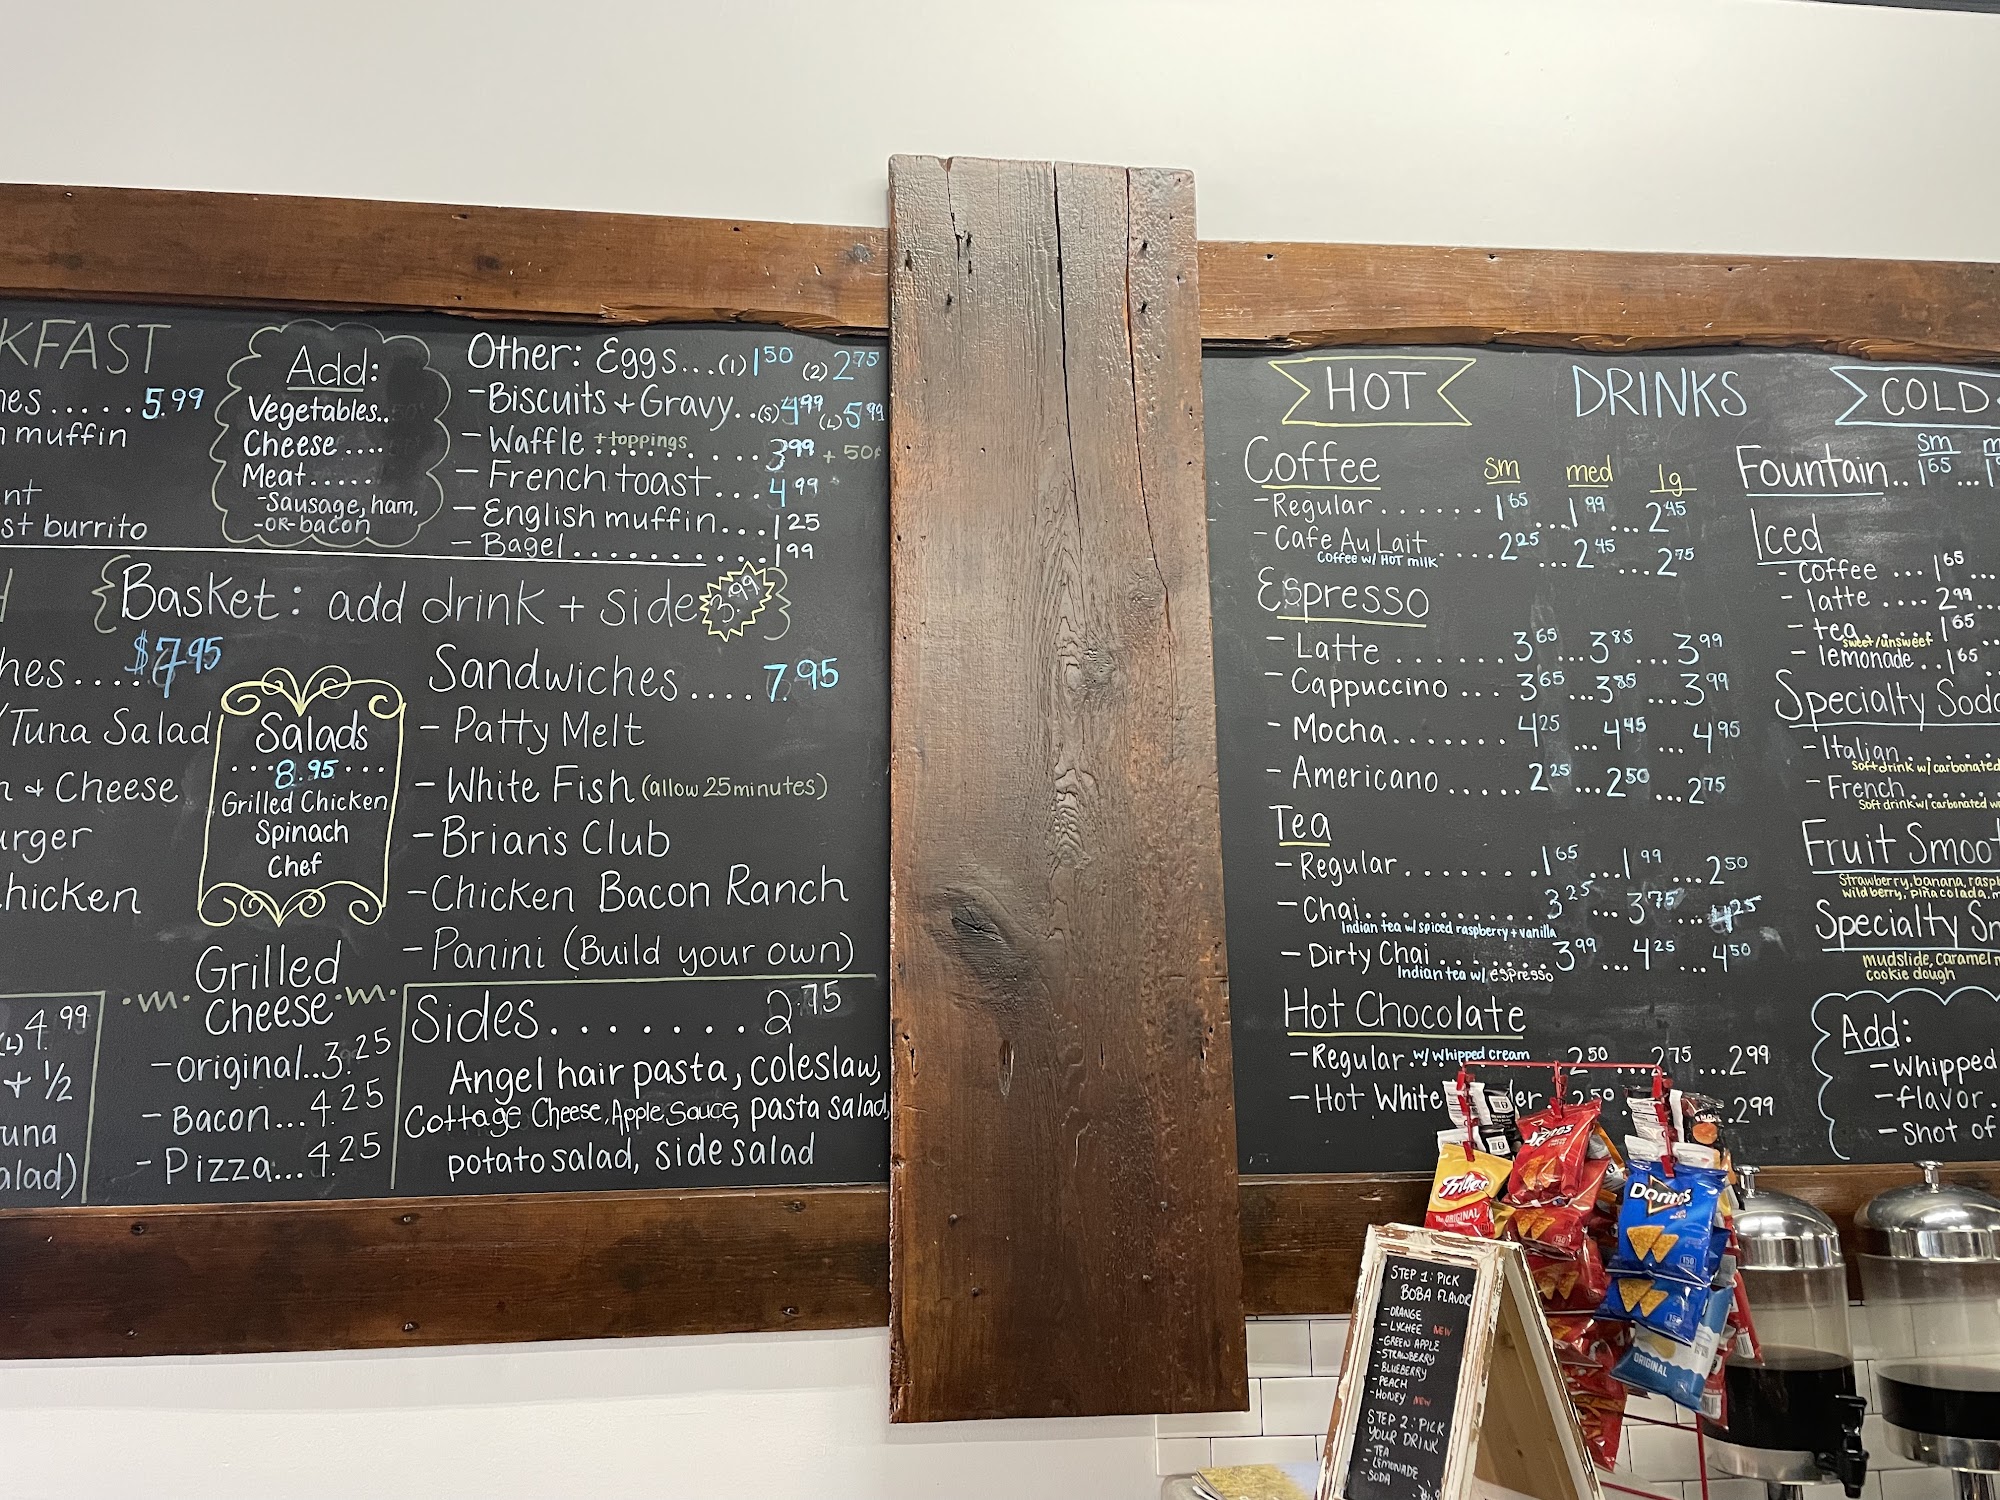 KFAST
5.99
muffin
st burrito
Add:
Vegetables..
Cheese....
Meat.....
-Sausage, ham,
-OR- bacon
Other: Eggs...(1) 1.50 (2) 2.75
-Biscuits + Gravy..(S) 4.99 (L) 5.99
- Waffle + toppings ........ 3.99 + 50¢
- French toast... 4.99
- English muffin... 1.25
- Bagel.......... 1.99
{Basket: add drink + side 3.99}
$7.95
/Tuna Salad
& Cheese
Salads
...8.95...
Grilled Chicken
Spinach
Chef
Sandwiches.... 7.95
- Patty Melt
- White Fish (allow 25 minutes)
- Brian's Club
- Chicken Bacon Ranch
- Panini (Build your own)
(L) 4.99
+ 1/2
Grilled
Cheese
- original.. 3.25
- Bacon... 4.25
- Pizza... 4.25
Sides........ 2.75
Angel hair pasta, coleslaw,
Cottage Cheese, Apple Sauce, pasta salad,
potato salad, side salad
HOT DRINKS COLD
Coffee sm med lg
- Regular....... 1.65 ... 1.99 ... 2.45
- Cafe Au Lait.... 2.25 ... 2.45 ... 2.75
Coffee w/ HOT milk
Espresso
- Latte ....... 3.65 ... 3.85 ... 3.99
- Cappuccino ... 3.65 ... 3.85 ... 3.99
- Mocha....... 4.25 ... 4.45 ... 4.95
- Americano ..... 2.25 ... 2.50 ... 2.75
Tea
- Regular....... 1.65 ... 1.99 ... 2.50
- Chai.......... 3.25 ... 3.75 ... 4.25
Indian tea w/ spiced raspberry + vanilla
- Dirty Chai ...... 3.99 ... 4.25 ... 4.50
Indian tea w/ espresso
Hot Chocolate
- Regular w/ whipped cream 2.50 ... 2.75 ... 2.99
- Hot White 2.50 2.99
sm
Fountain.. 1.65 ...
Iced
- coffee ... 1.65 ...
- latte .... 2.99
- tea ...... 1.65
sweet/unsweet
- lemonade .. 1.65
Specialty
- Italian
Soft drink w/ carbonated
- French
Soft drink w/ carbonated
Fruit
Strawberry, banana,
wildberry, piña colada,
Specialty
mudslide, caramel
cookie dough
Add:
- whipped
- flavor.
- shot of
STEP 1: PICK
BOBA FLAVOR
- ORANGE
- LYCHEE NEW
- GREEN APPLE
- STRAWBERRY
- BLUEBERRY
- PEACH
- HONEY NEW
STEP 2: PICK
YOUR DRINK
- TEA
- LEMONADE
- SODA
Fritos
The ORIGINAL
Doritos
Doritos
ORIGINAL